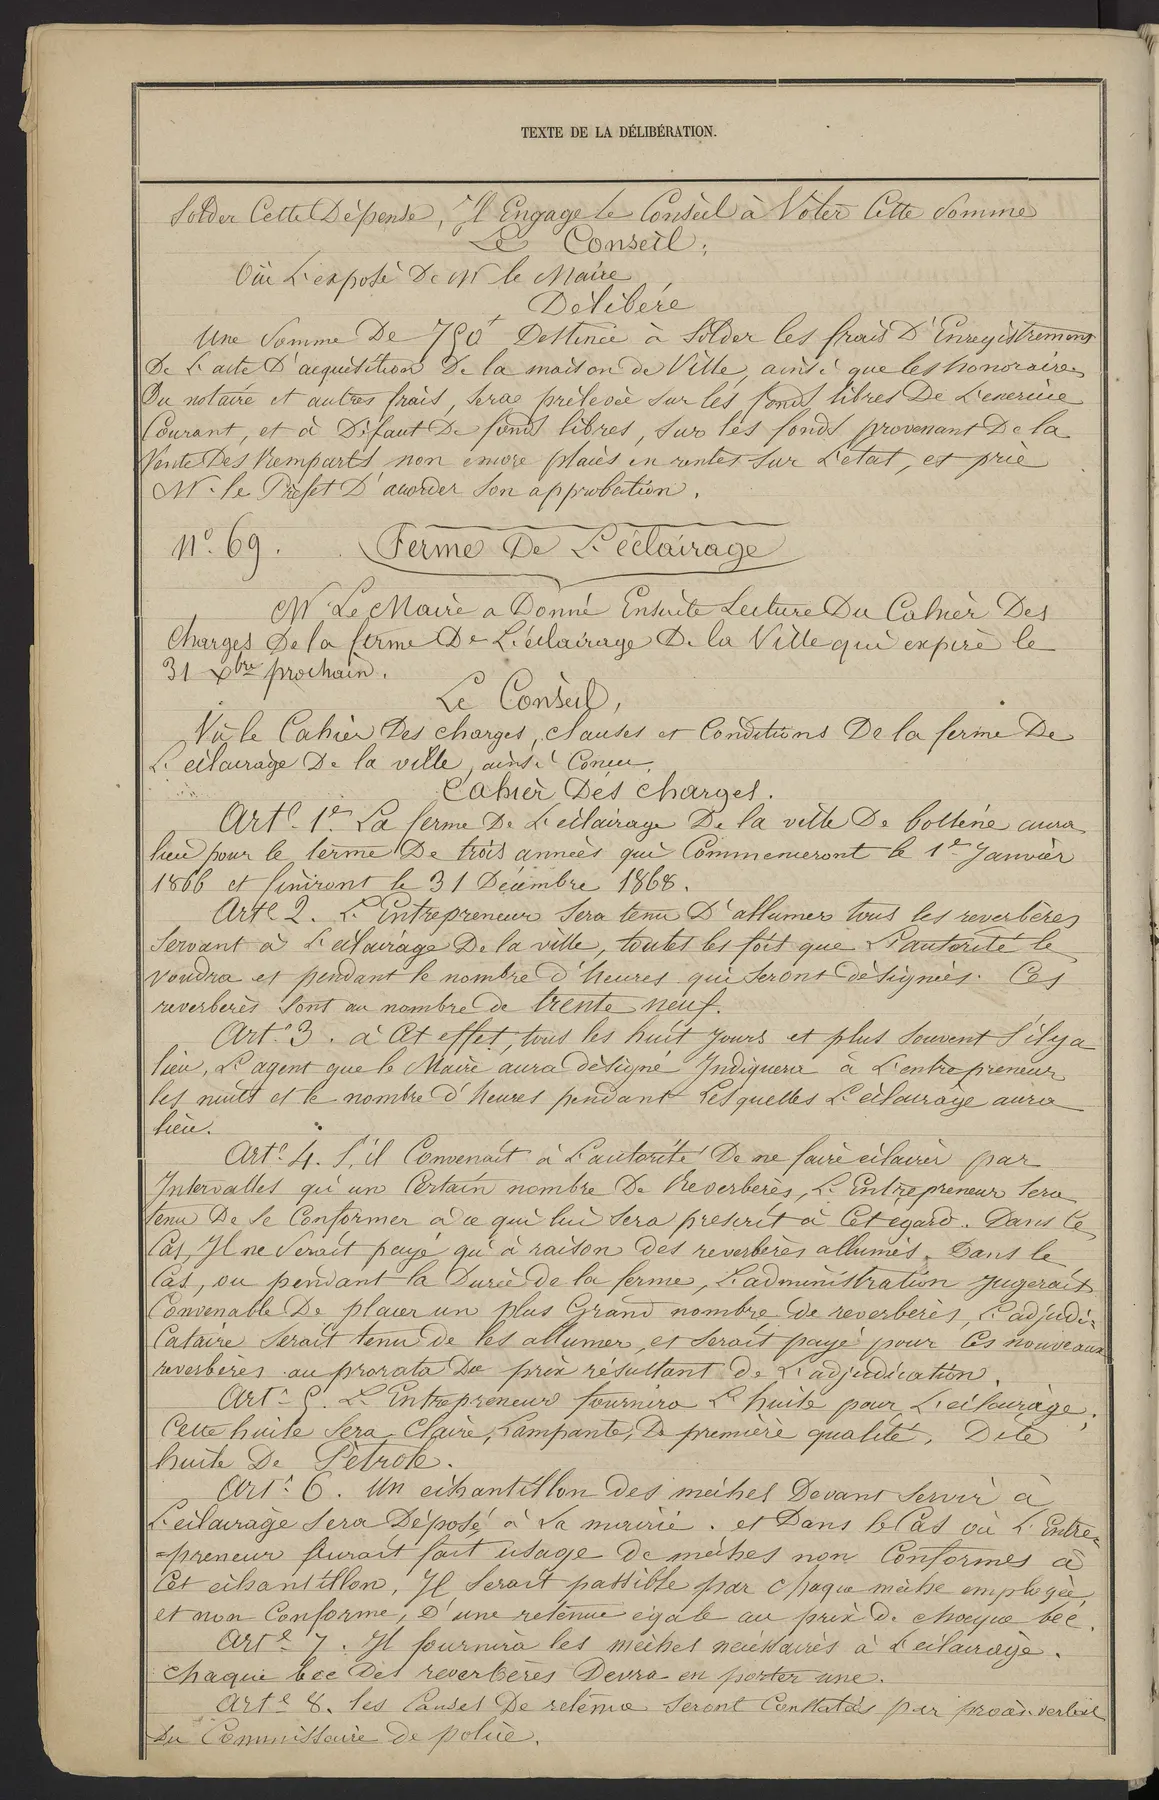 TEXTE DE LA DÉLIBÉRATION.
Solder Cette Dépense, Il Engage le Conseil à Voter Cette Somme
Le Conseil,
Oüi L'exposé De Mr le Maire
Délibére
Une Somme De 750f Destinée à Solder les frais D'Enregistrement
De L'acte D'acquisition De la maison de Ville, ainsi que les honoraires
Du notaire et autres frais, sera prélevée sur les fonds libres De L'exercice
Courant, et à Défaut De fonds libres, sur les fonds provenant De la
Vente Des Remparts non encore placés en rentes sur L'état, et prie
Mr. le Préfet D'accorder son approbation.
No. 69. Ferme De L'éclairage
Mr Le Maire a Donné Ensuite Lecture Du Cahier Des
Charges De la ferme De L'éclairage De la Ville qui expire le
31 Xbre prochain.
Le Conseil,
Vu le Cahier Des charges, clauses et Conditions De la ferme De
L'éclairage De la ville, ainsi Concu,
Cahier Des charges.
Artc. 1er. La ferme De L'éclairage De la ville De bollène aura
lieu pour le terme De trois années qui Commenceront le 1er Janvier
1866 et finiront le 31 Décembre 1868.
Artc 2. L'Entrepreneur sera tenu D'allumer tous les reverbères
servant à L'éclairage De la ville, toutes les fois que L'autorité le
voudra et pendant le nombre d'heures qui seront désignées. Ces
reverberès sont au nombre de trente neuf.
Artc. 3. à Cet effet, tous les huit jours et plus souvent s'il y a
lieu, L'agent que le Maire aura désigné Indiquera à L'entrepreneur
les nuits et le nombre d'heures pendant Lesquelles L'éclairage aura
lieu.
Artc. 4. S'il Convenait à L'autorité De ne faire éclairer par
Intervalles qu'un Certain nombre De Reverberès, L'Entrepreneur sera
tenu De se Conformer à ce qui lui sera prescrit à Cet egard. Dans ce
Cas, Il ne serait payé qu'à raison des reverbères allumés. Dans le
Cas, ou pendant la Durée de la ferme, L'administration jugerait
Convenable De placer un plus Grand nombre de reverberès, L'adjudi-
cataire serait tenu de les allumer, et serait payé pour Ces nouveaux
reverbères au prorata Du prix résultant de L'adjudication.
Artc. 5. L'Entrepreneur fournira L'huile pour L'éclairage;
Cette huile sera Claire, Lampante, De première qualité, Dite
huile De Pétrole.
Artc. 6. Un echantillon des mèches Devant servir à
L'éclairage sera Déposé à La mairie. et Dans le Cas où L'Entre-
=preneur fairait usage de mèches non Conformes à
Cet echantillon, Il serait passible par chaque mèche employée,
et non Conforme, D'une retenue égale au prix de chaque bec.
Artc. 7. Il fournira les mèches nécessaires à L'éclairage.
Chaque bec Des reverbères Devra en porter une.
Artc 8. les Causes De retenue seront Constatées par procès-verbal
Du Commissaire de police.